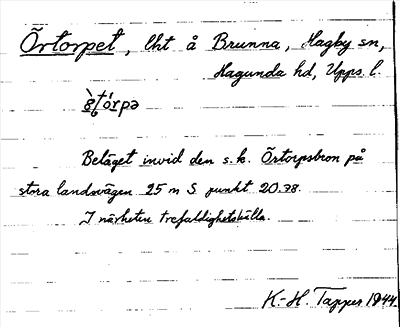 Õrtorpet, lht å Brunna, Hagby sn,
Hagunda hd, Upps. l.
Beläget invid den s.k. Õrtorpsbron på
stora landsvägen 25 m S. punkt 20.78.
I närheten trefaldighetskälla.
K-H. Tapper 1944.